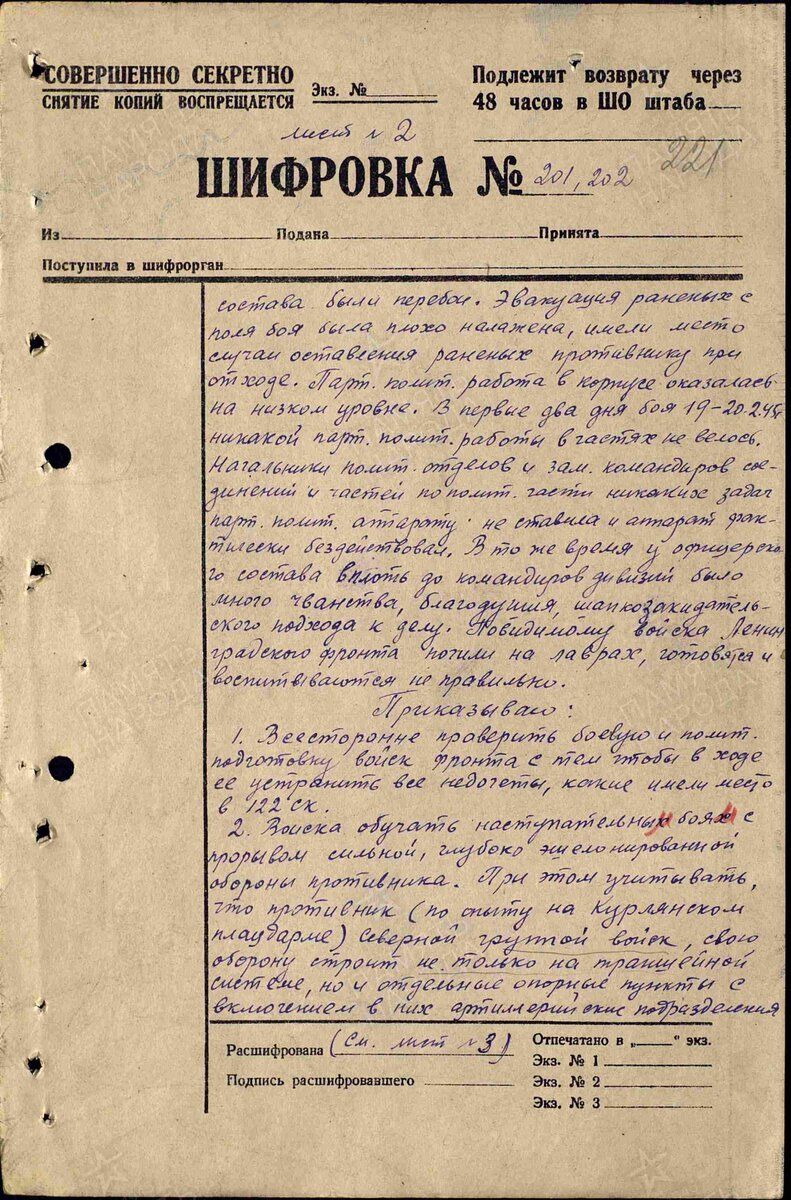 СОВЕРШЕННО СЕКРЕТНО
СНЯТИЕ КОПИЙ ВОСПРЕЩАЕТСЯ
Экз. №
Подлежит возврату через
48 часов в ШО штаба
лист № 2
221
ШИФРОВКА № 201, 202
Из Подана Принята
Поступила в шифрорган
состава были перебои. Эвакуация раненых с
поля боя была плохо налажена, имели место
случаи оставления раненых противнику при
отходе. Парт. полит. работа в корпусе оказалась
на низком уровне. В первые два дня боя 19-20.2.45г
никакой парт. полит. работы в частях не велось.
Начальники полит. отделов и зам. командиров сое-
динений и частей по полит. части никаких задач
парт. полит. аппарату не ставила и аппарат фак-
тически бездействовал. В то же время у офицерско-
го состава вплоть до командиров дивизий было
много чванства, благодушия, шапкозакидатель-
ского подхода к делу. Повидимому войска Ленин
градского фронта почили на лаврах, готовятся и
воспитываются не правильно.
Приказываю:
1. Всесторонне проверить боевую и полит.
подготовку войск фронта с тем чтобы в ходе
ее устранить все недочеты, какие имели место
в 122 ск.
2. Войска обучать наступательных боях с
прорывом сильной, глубоко эшелонированной
обороны противника. При этом учитывать,
что противник (по опыту на Курлянском
плацдарме) Северной группой войск, свою
оборону строит не только на траншейной
системе, но и отдельные опорные пункты с
включением в них артиллерийские подразделения
Расшифрована (См. лист № 3)
Подпись расшифровавшего
Отпечатано в „ “ экз.
Экз. № 1
Экз. № 2
Экз. № 3
ПАМЯТЬ
НАРОДА